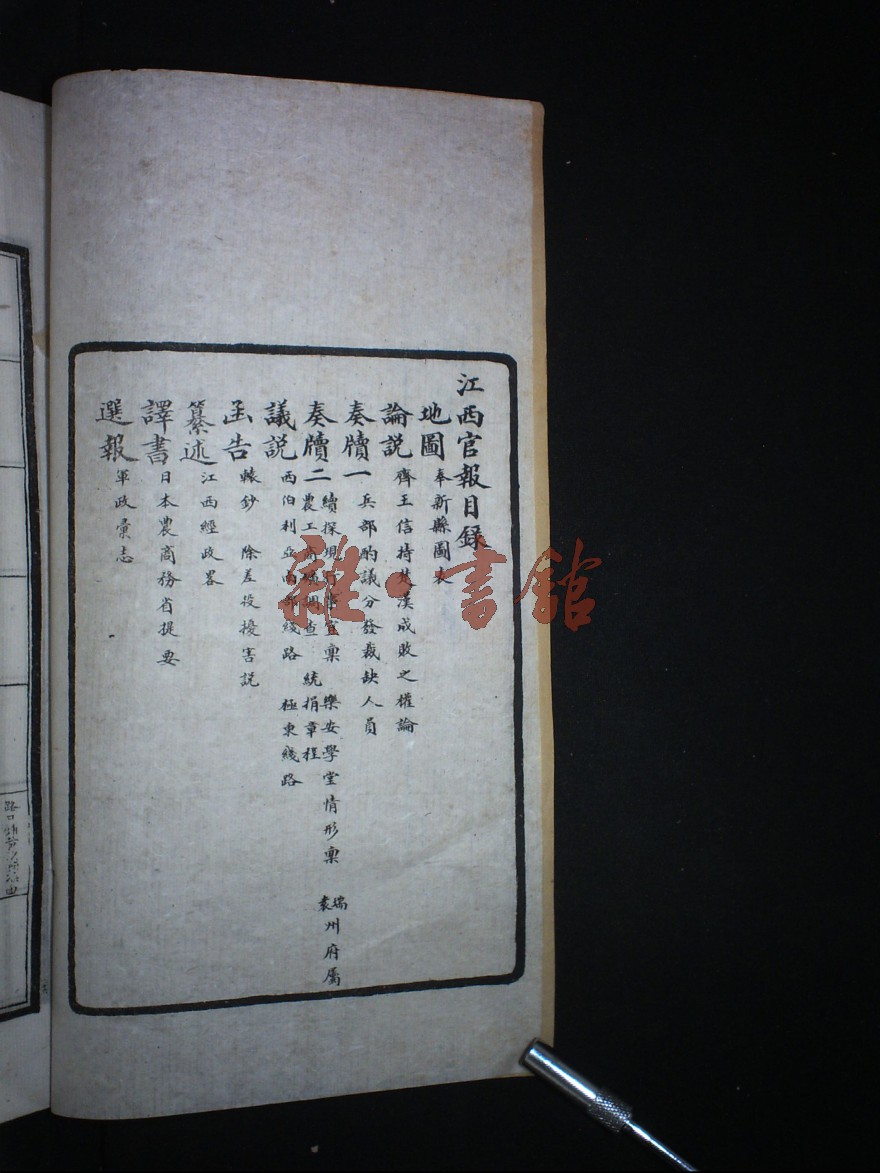 江西官報目錄
地圖 奉新縣圖表
論説 齊王信持楚漢成敗之權論
奏牘一 兵部酌議分發裁缺人員
奏牘二 續探現行事宜稟 樂安學堂情形稟 瑞袁州府屬
農工商礦調查 統捐章程
議説 西伯利亞內部綫路 極東綫路
函告 轅鈔 除差役擾害説
纂述 江西經政畧
譯書 日本農商務省提要
選報 軍政彙志
雜·書館